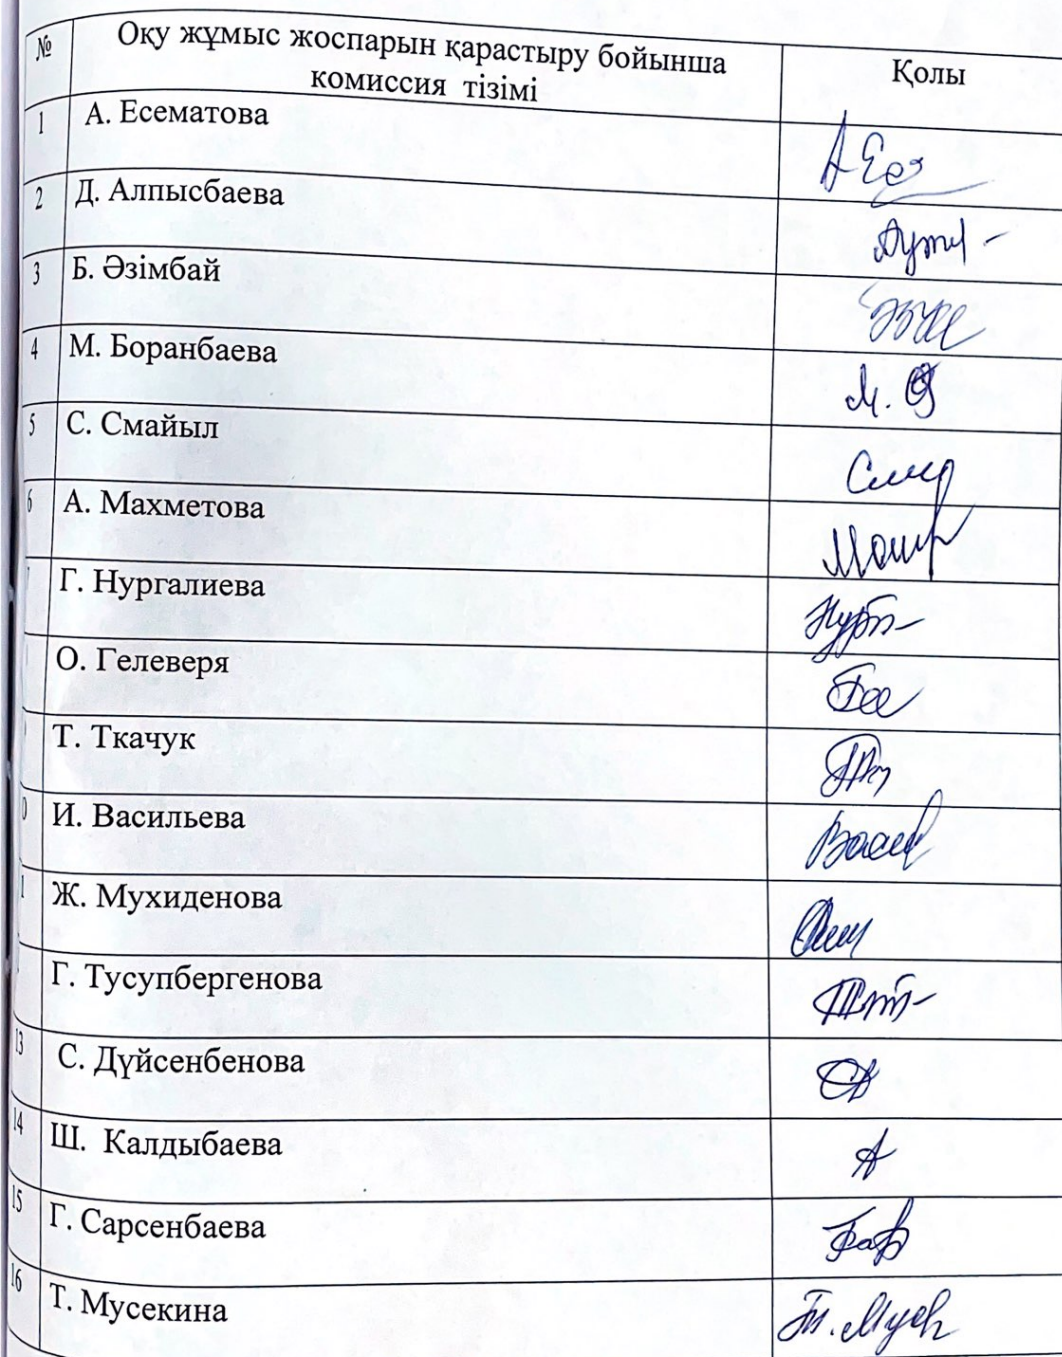 № Оқу жұмыс жоспарын қарастыру бойынша Қолы
комиссия тізімі
1 А. Есематова
2 Д. Алпысбаева
3 Б. Әзімбай
4 М. Боранбаева
5 С. Смайыл
6 А. Махметова
Г. Нургалиева
О. Гелеверя
Т. Ткачук
0 И. Васильева
1 Ж. Мухиденова
Г. Тусупбергенова
13 С. Дүйсенбенова
14 Ш. Калдыбаева
15 Г. Сарсенбаева
16 Т. Мусекина